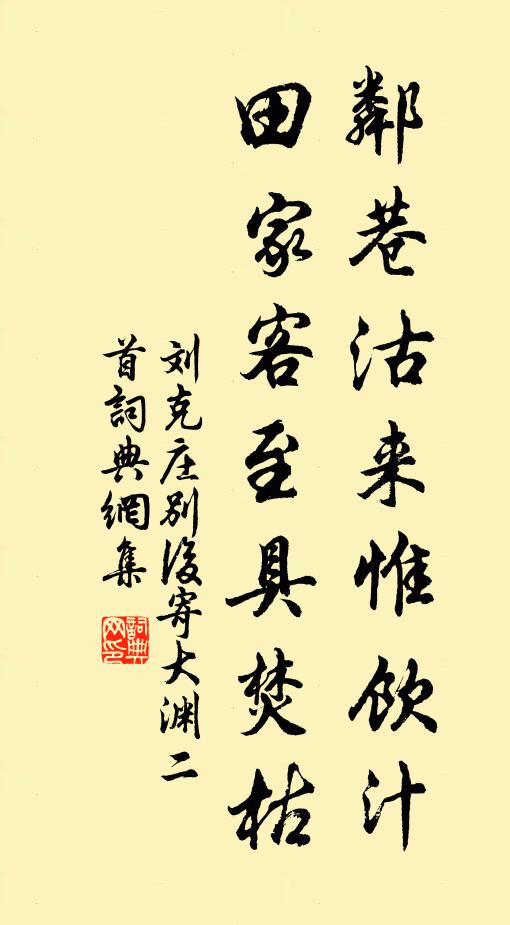 鄰巷沽来惟飲汁
田家客至具焚枯
刘克庄别後寄大渊二
首詞典網集
詞典
网印